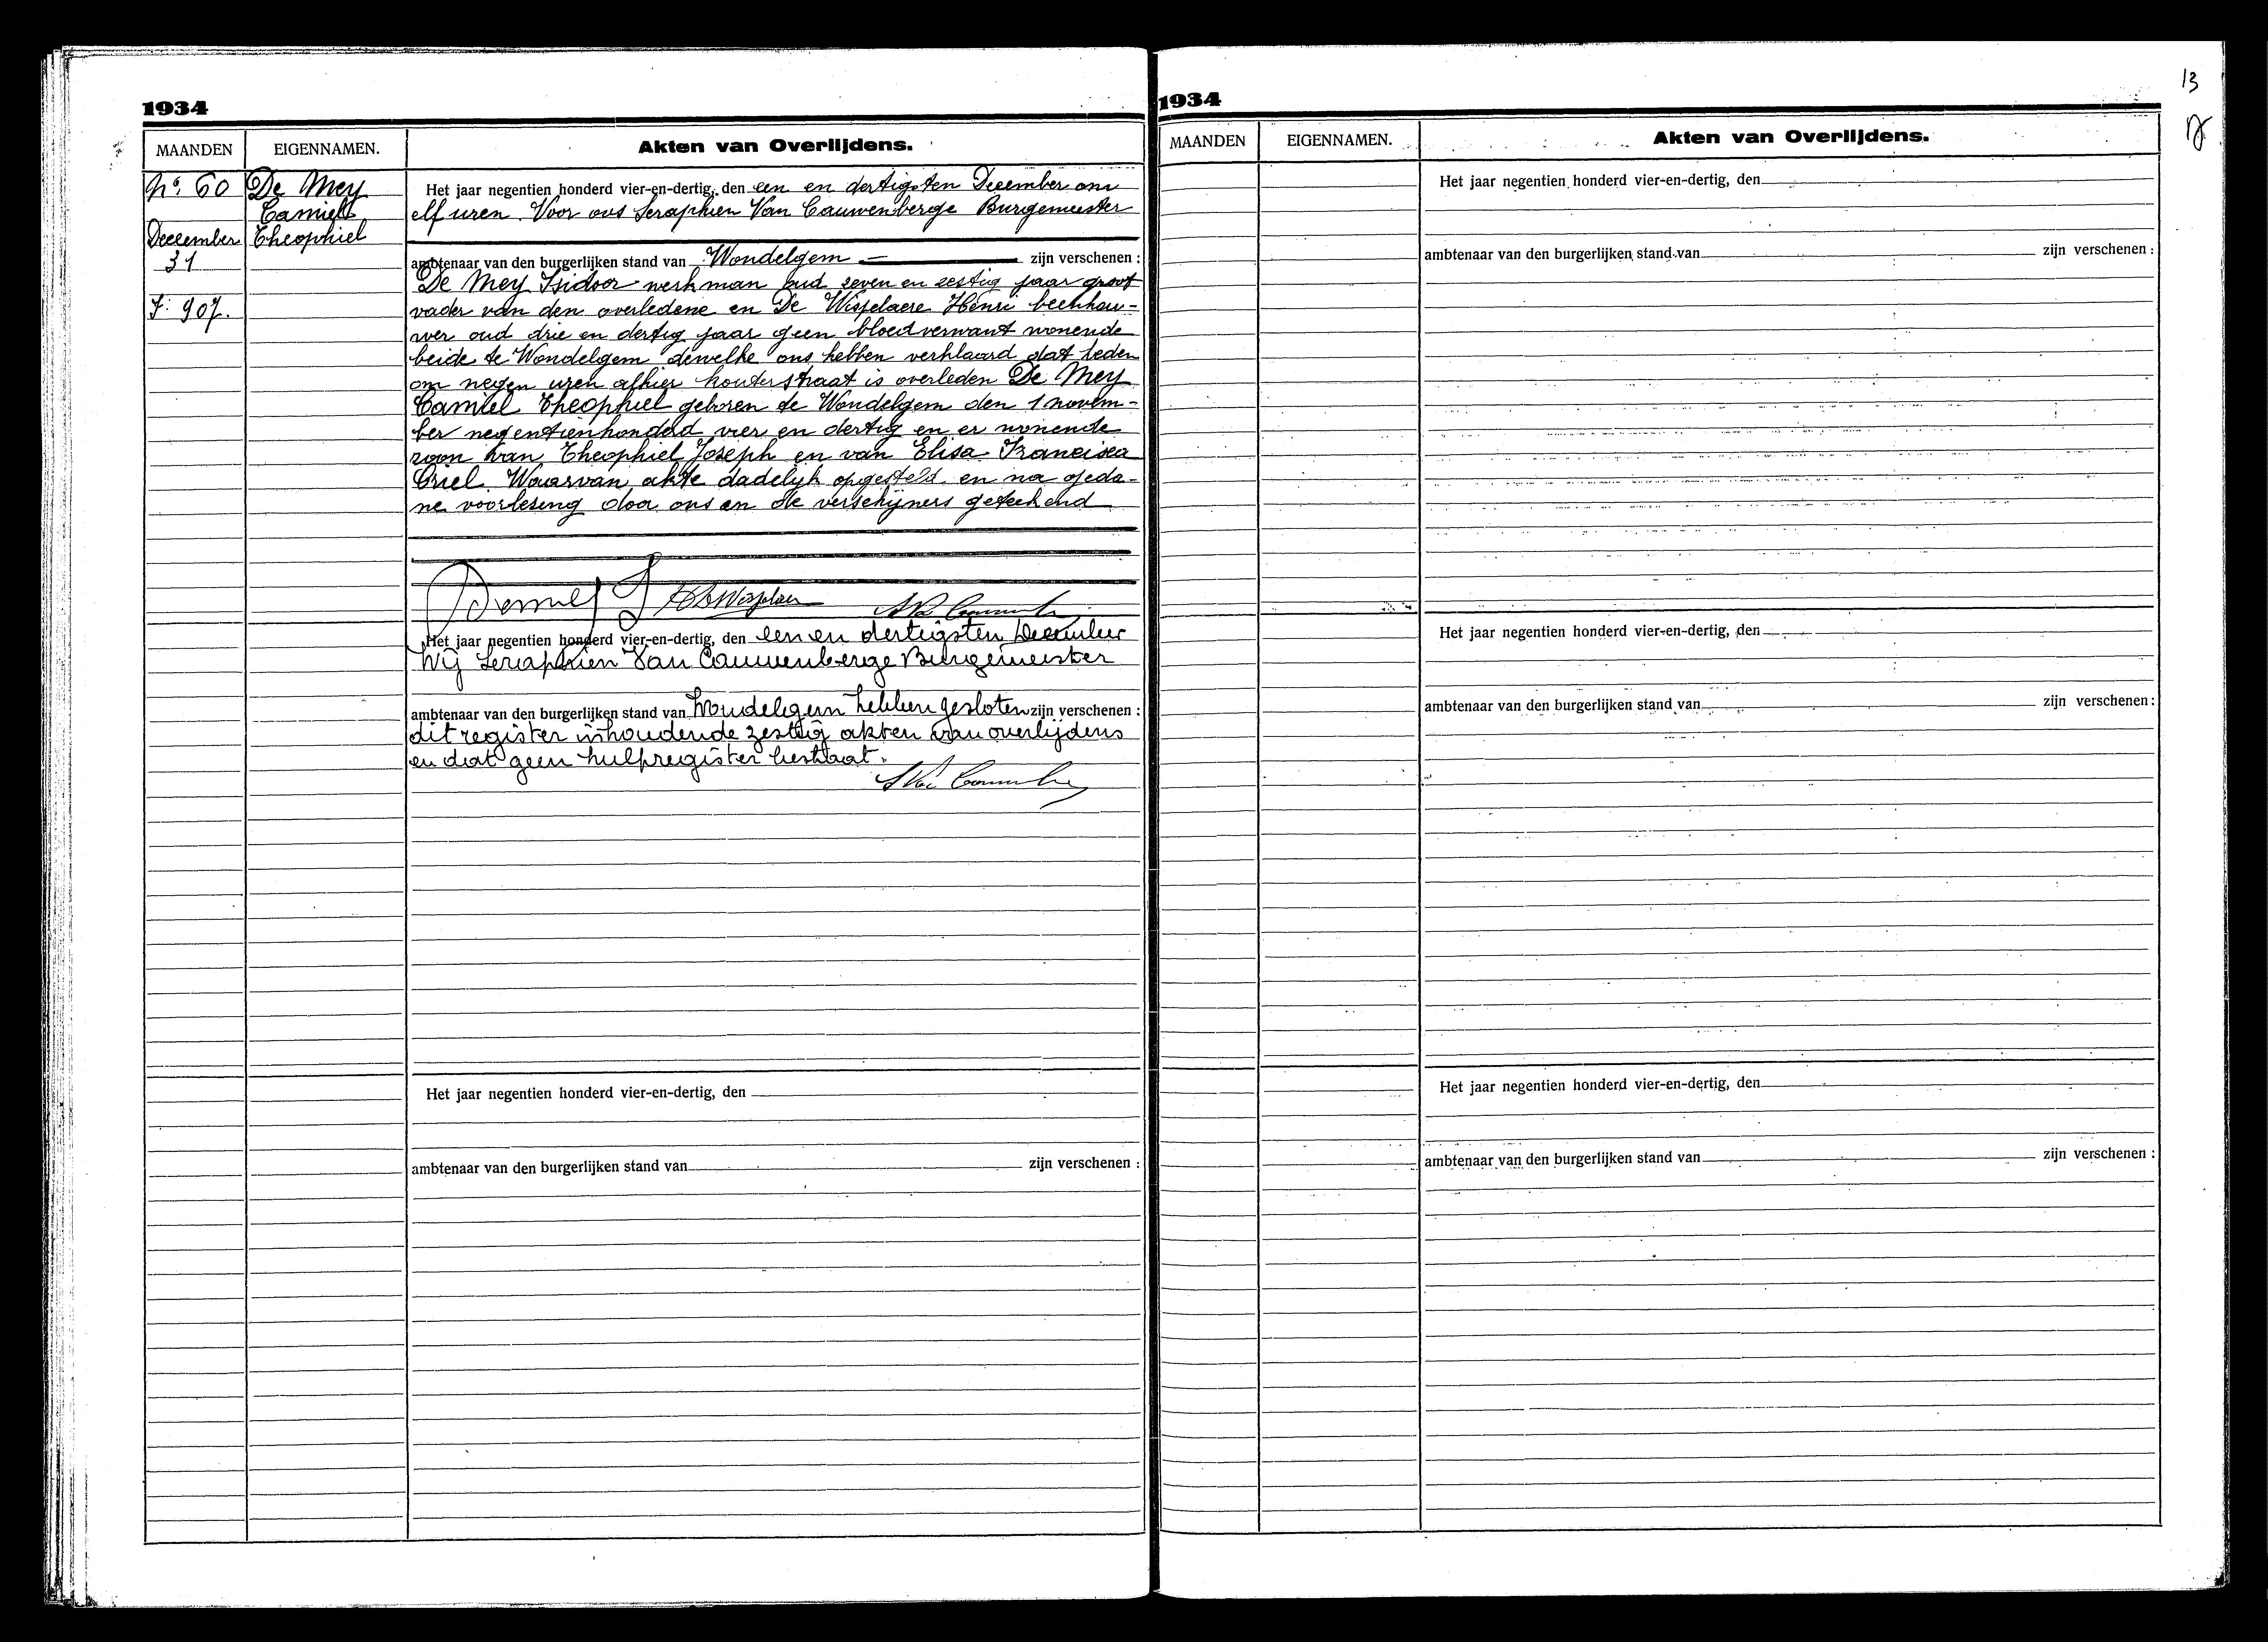 1934
MAANDEN EIGENNAMEN. Akten van Overlijdens.
No. 60 De Mey
Camiel
December Theophiel
31
F: 907.
Het jaar negentien honderd vier-en-dertig, den een en dertigsten December om
elf uren Voor ons Seraphien Van Cauwenberge Burgemeester
ambtenaar van den burgerlijken stand van Wondelgem zijn verschenen :
De Mey Isidoor werkman oud zeven en zestig jaar groot
vader van den overledene en De Wispelaere Henri beenhou-
wer oud drie en dertig jaar geen bloedverwant wonende
beide te Wondelgem dewelke ons hebben verklaard dat heden
om negen uren alhier kouterstraat is overleden De Mey
Camiel Theophiel geboren te Wondelgem den 1 novem-
ber negentienhonderd vier en dertig en er wonende
zoon van Theophiel Joseph en van Elisa Francisca
Criel Waarvan akte dadelijk opgesteld en na geda-
ne voorlezing door ons en de verschijners geteekend
Demey I
Het jaar negentien honderd vier-en-dertig, den een en dertigsten December
Wij Seraphien Van Cauwenberge Burgemeester
ambtenaar van den burgerlijken stand van Wondelgem hebben gesloten zijn verschenen :
dit register inhoudende zestig akten van overlijdens
en dat geen hulpregister bestaat.
Het jaar negentien honderd vier-en-dertig, den
ambtenaar van den burgerlijken stand van zijn verschenen :
13
1934
MAANDEN EIGENNAMEN. Akten van Overlijdens.
Het jaar negentien honderd vier-en-dertig, den
ambtenaar van den burgerlijken stand van zijn verschenen :
Het jaar negentien honderd vier-en-dertig, den
ambtenaar van den burgerlijken stand van zijn verschenen :
Het jaar negentien honderd vier-en-dertig, den
ambtenaar van den burgerlijken stand van zijn verschenen :